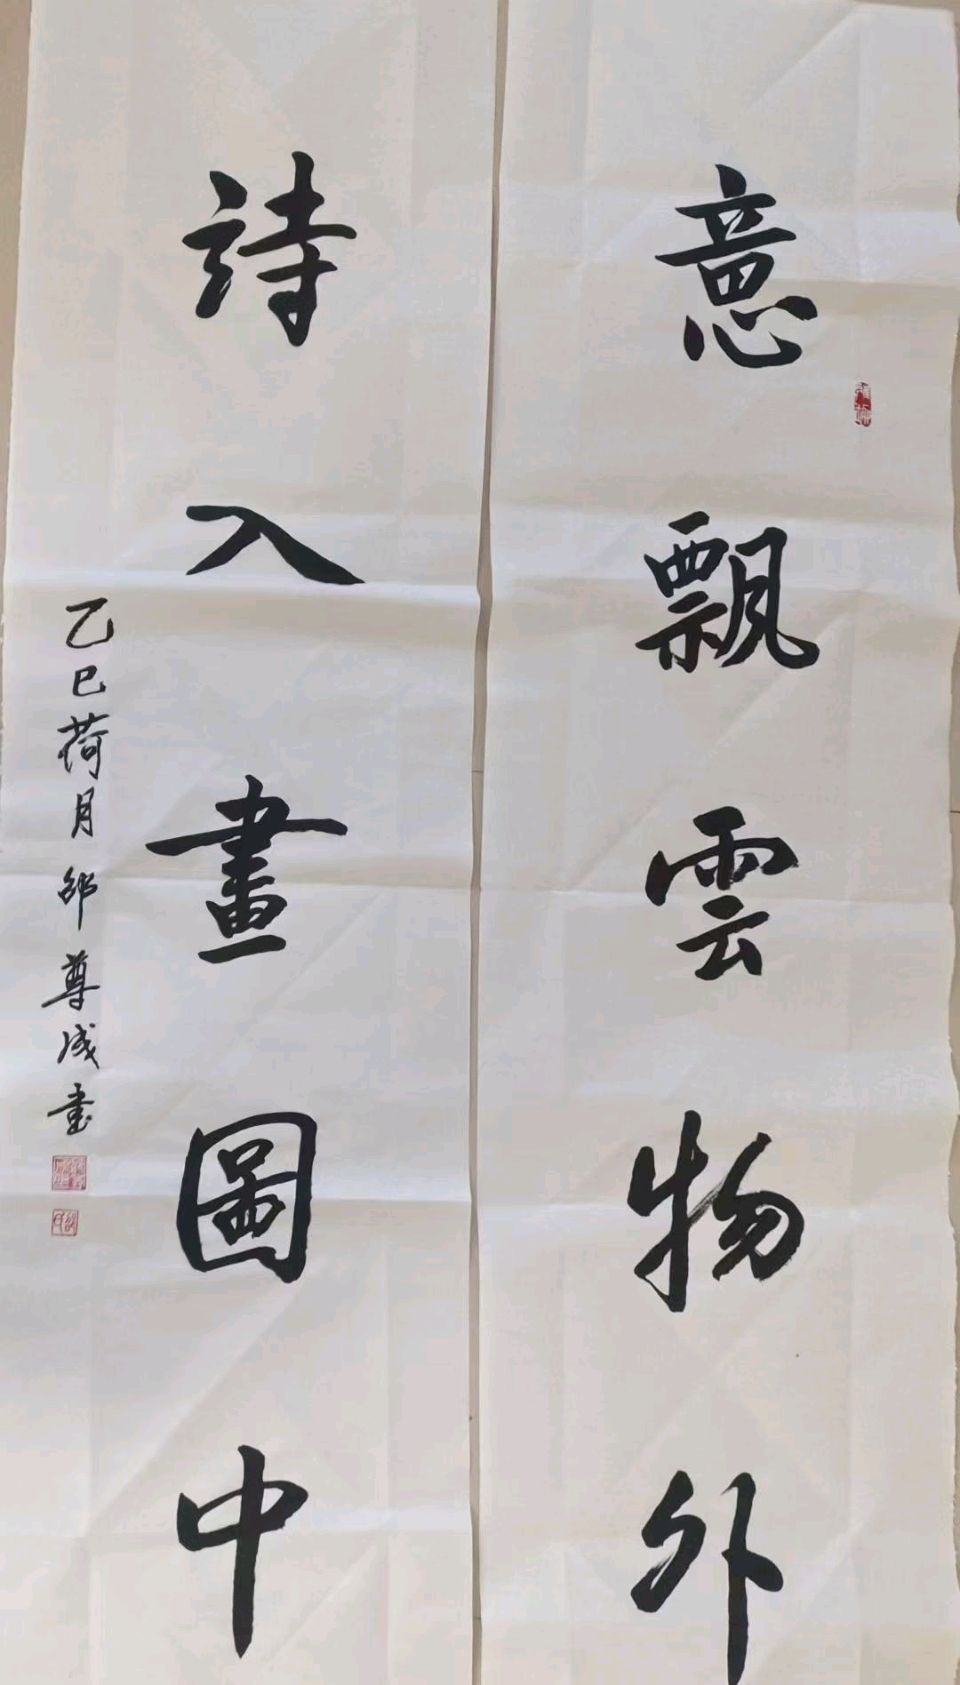 意飄雲物外
詩入畫圖中
乙巳荷月邵尊成書